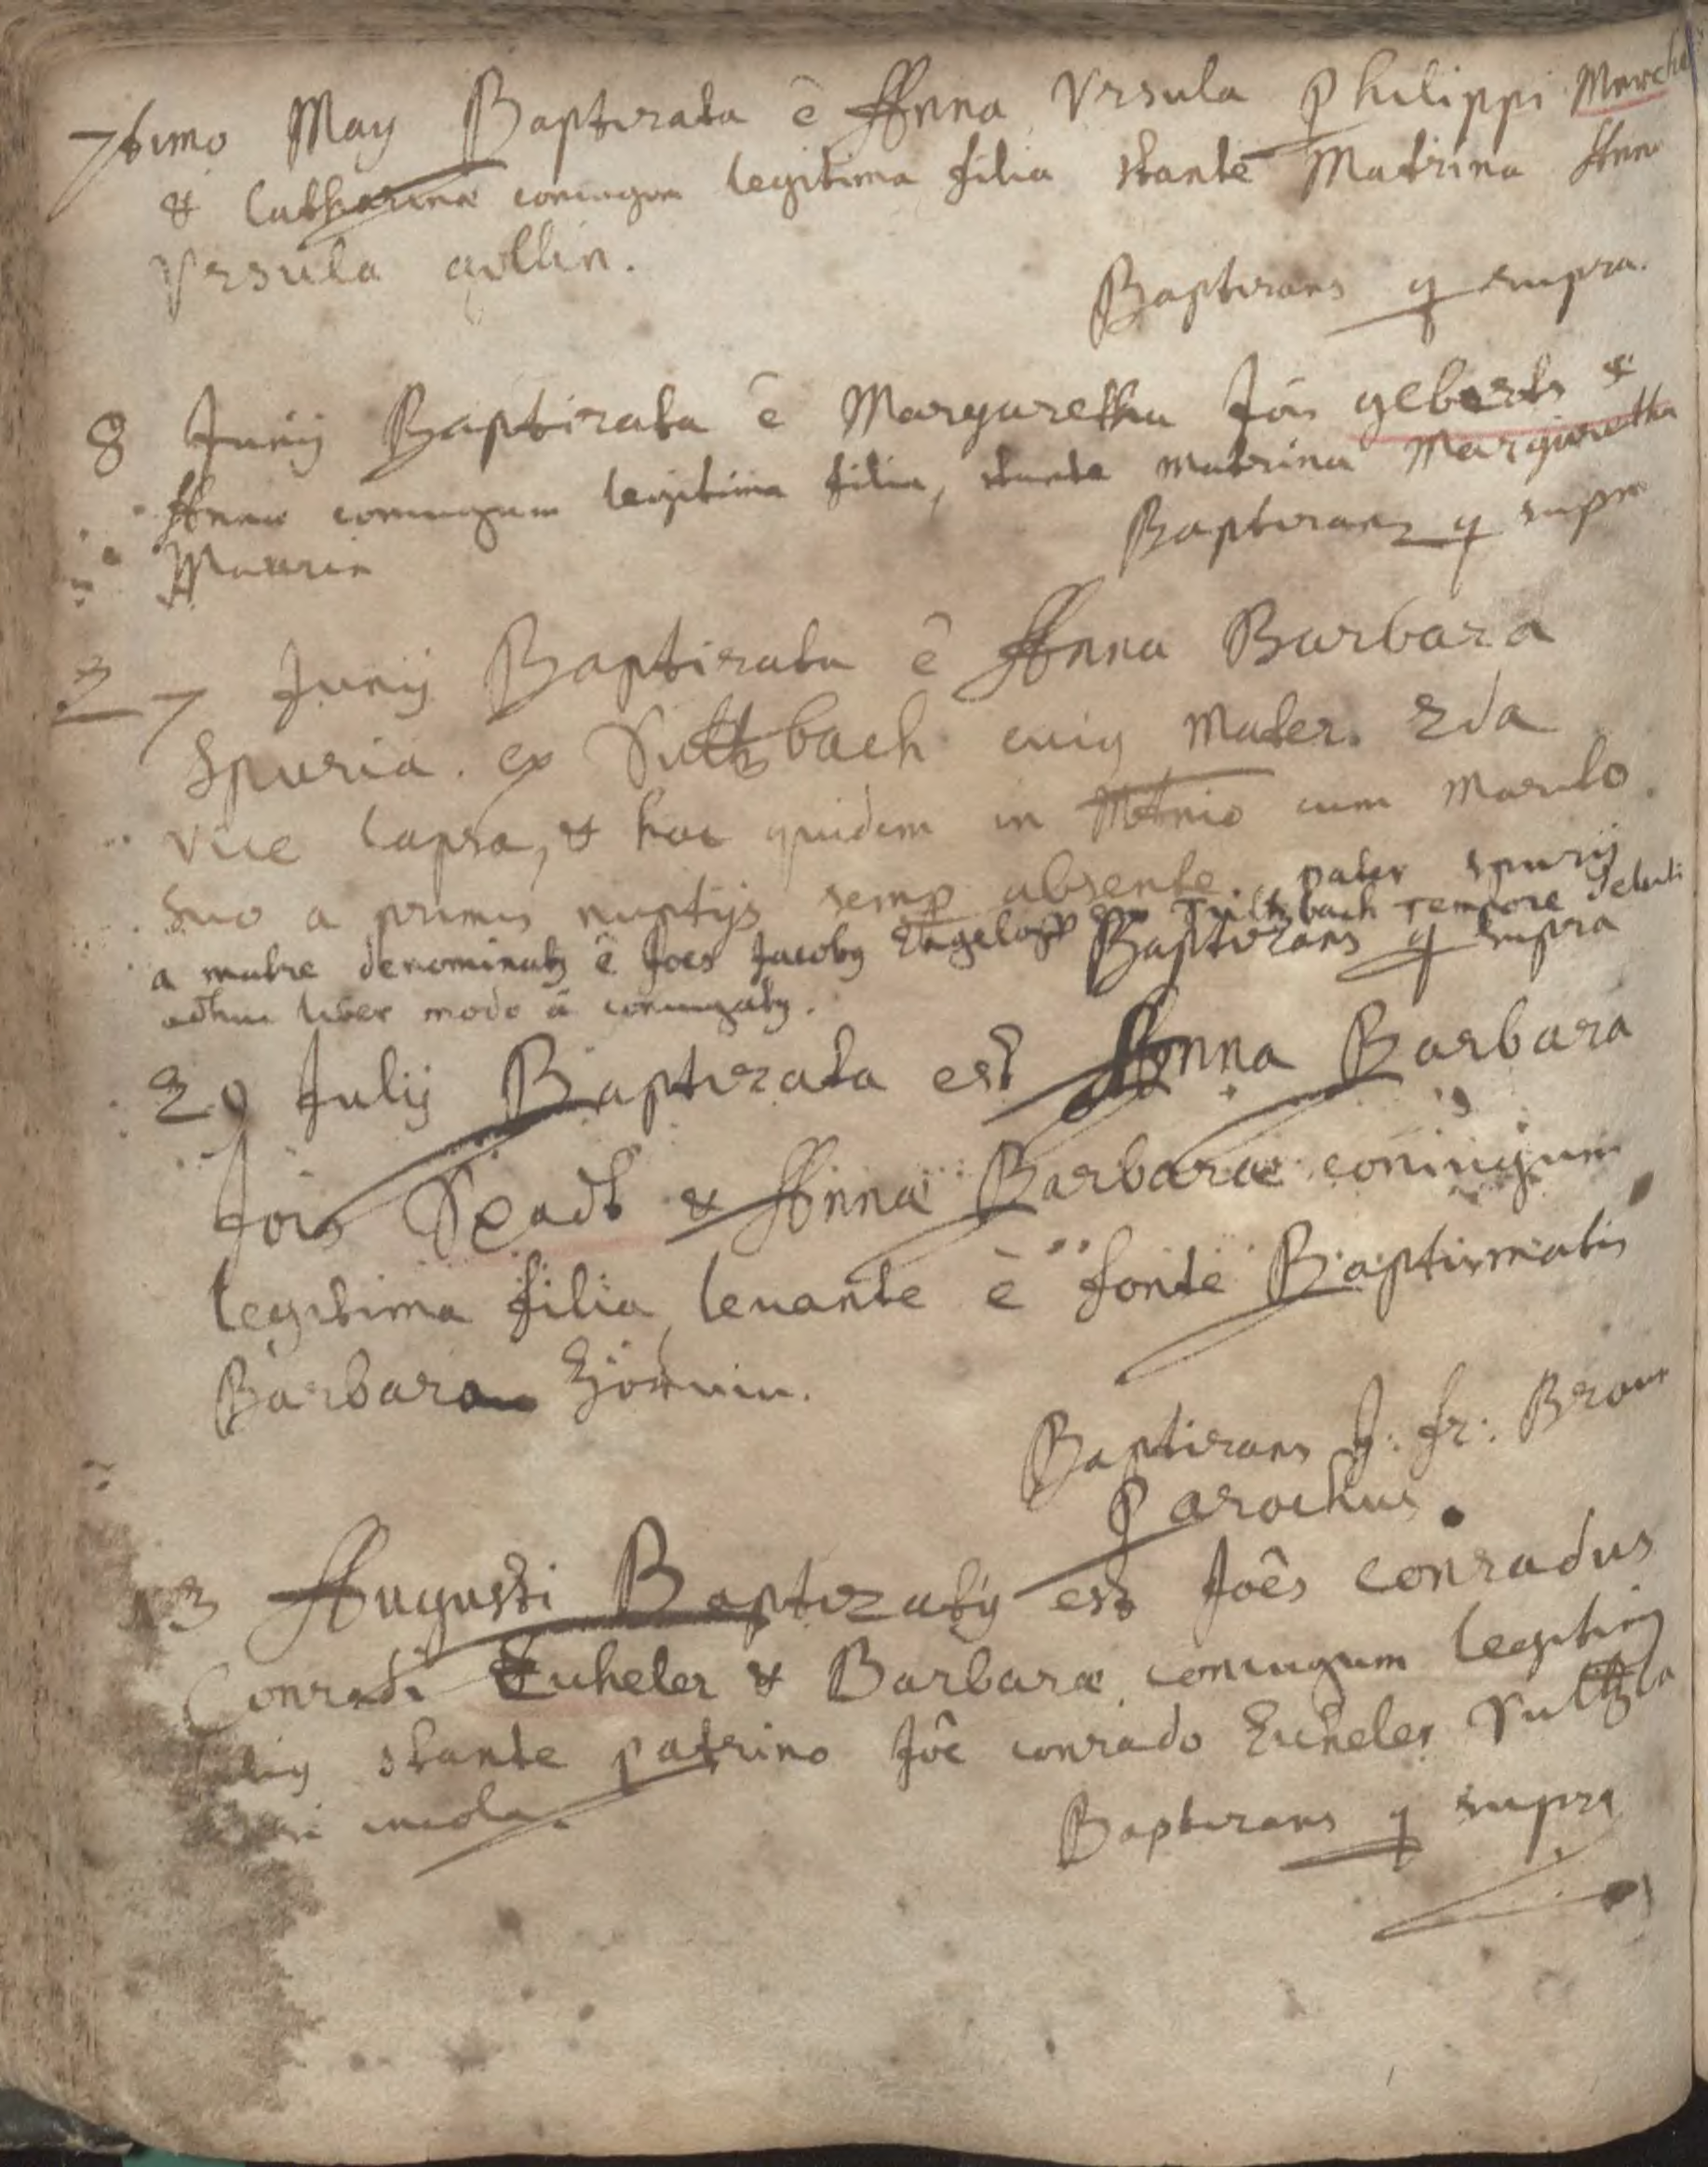 7timo May Baptizata ē Anna Vrsula Philippi
& Catharinæ coniugum legitima filia stante Matrina Anna
Vrsula
Baptizans q supra.
8 Junij Baptizata ē Margaretha Jois geberts &
Annæ coniugum legitima filia, stante matrina Margaretha
Maurin
Baptizans q supra
27 Junij Baptizata ē Anna Barbara
Spuria ex Sultzbach cuiq mater 2da
vice lapsa, & hac quidem in Mtrnio cum Marito
suo a primis nuptijs semp absente. pater spurij
a matre denominatq ē Joes Jacobq ex Sultzbach tempore delicti
adhuc liber modo ā coniugatq.
Baptizans q supra
29 Julij Baptizata est Anna Barbara
Jois Spadt & Annæ Barbaræ coniugum
legitima filia levante è fonte Baptismatis
Barbara
Baptizans J: fr: Braun
Parochus.
13 Augusti Baptizatq est Joēs Conradus
Conradi Eucheler & Barbaræ coniugum legitimq
filiq stante patrino Jōe conrado Eucheler Sultzba
censi incola.
Baptizans q supra